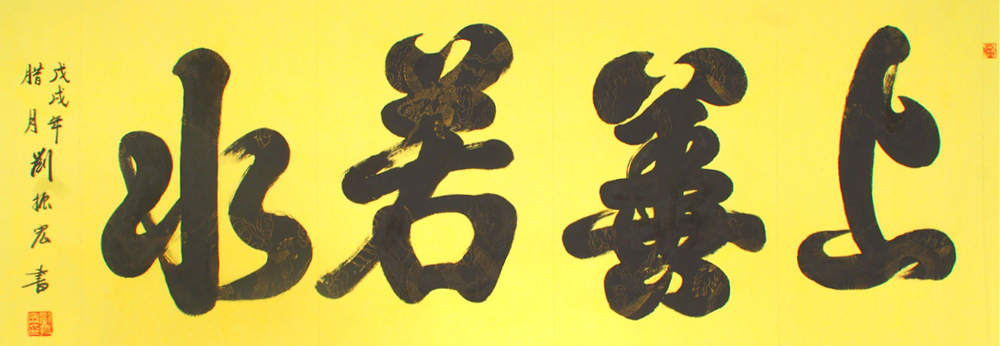 上善若水
戊戌年
腊月劉振宏書